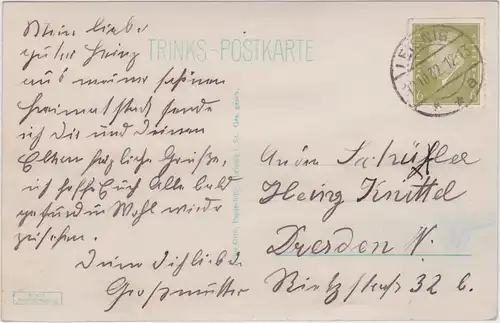 Mein lieber
guter Heinz
aus meiner schönen
Heimatstadt sende
ich Dir und Deinen
Eltern herzliche Grüße,
ich hoffe Euch Alle bald
gesund u Wohl wieder
zusehen.
Deine Dich liebende
Großmutter
TRINKS-POSTKARTE
LEISNIG
An den Schüler
Heinz Knittel
Dresden N.
Rietzstraße 32 b.